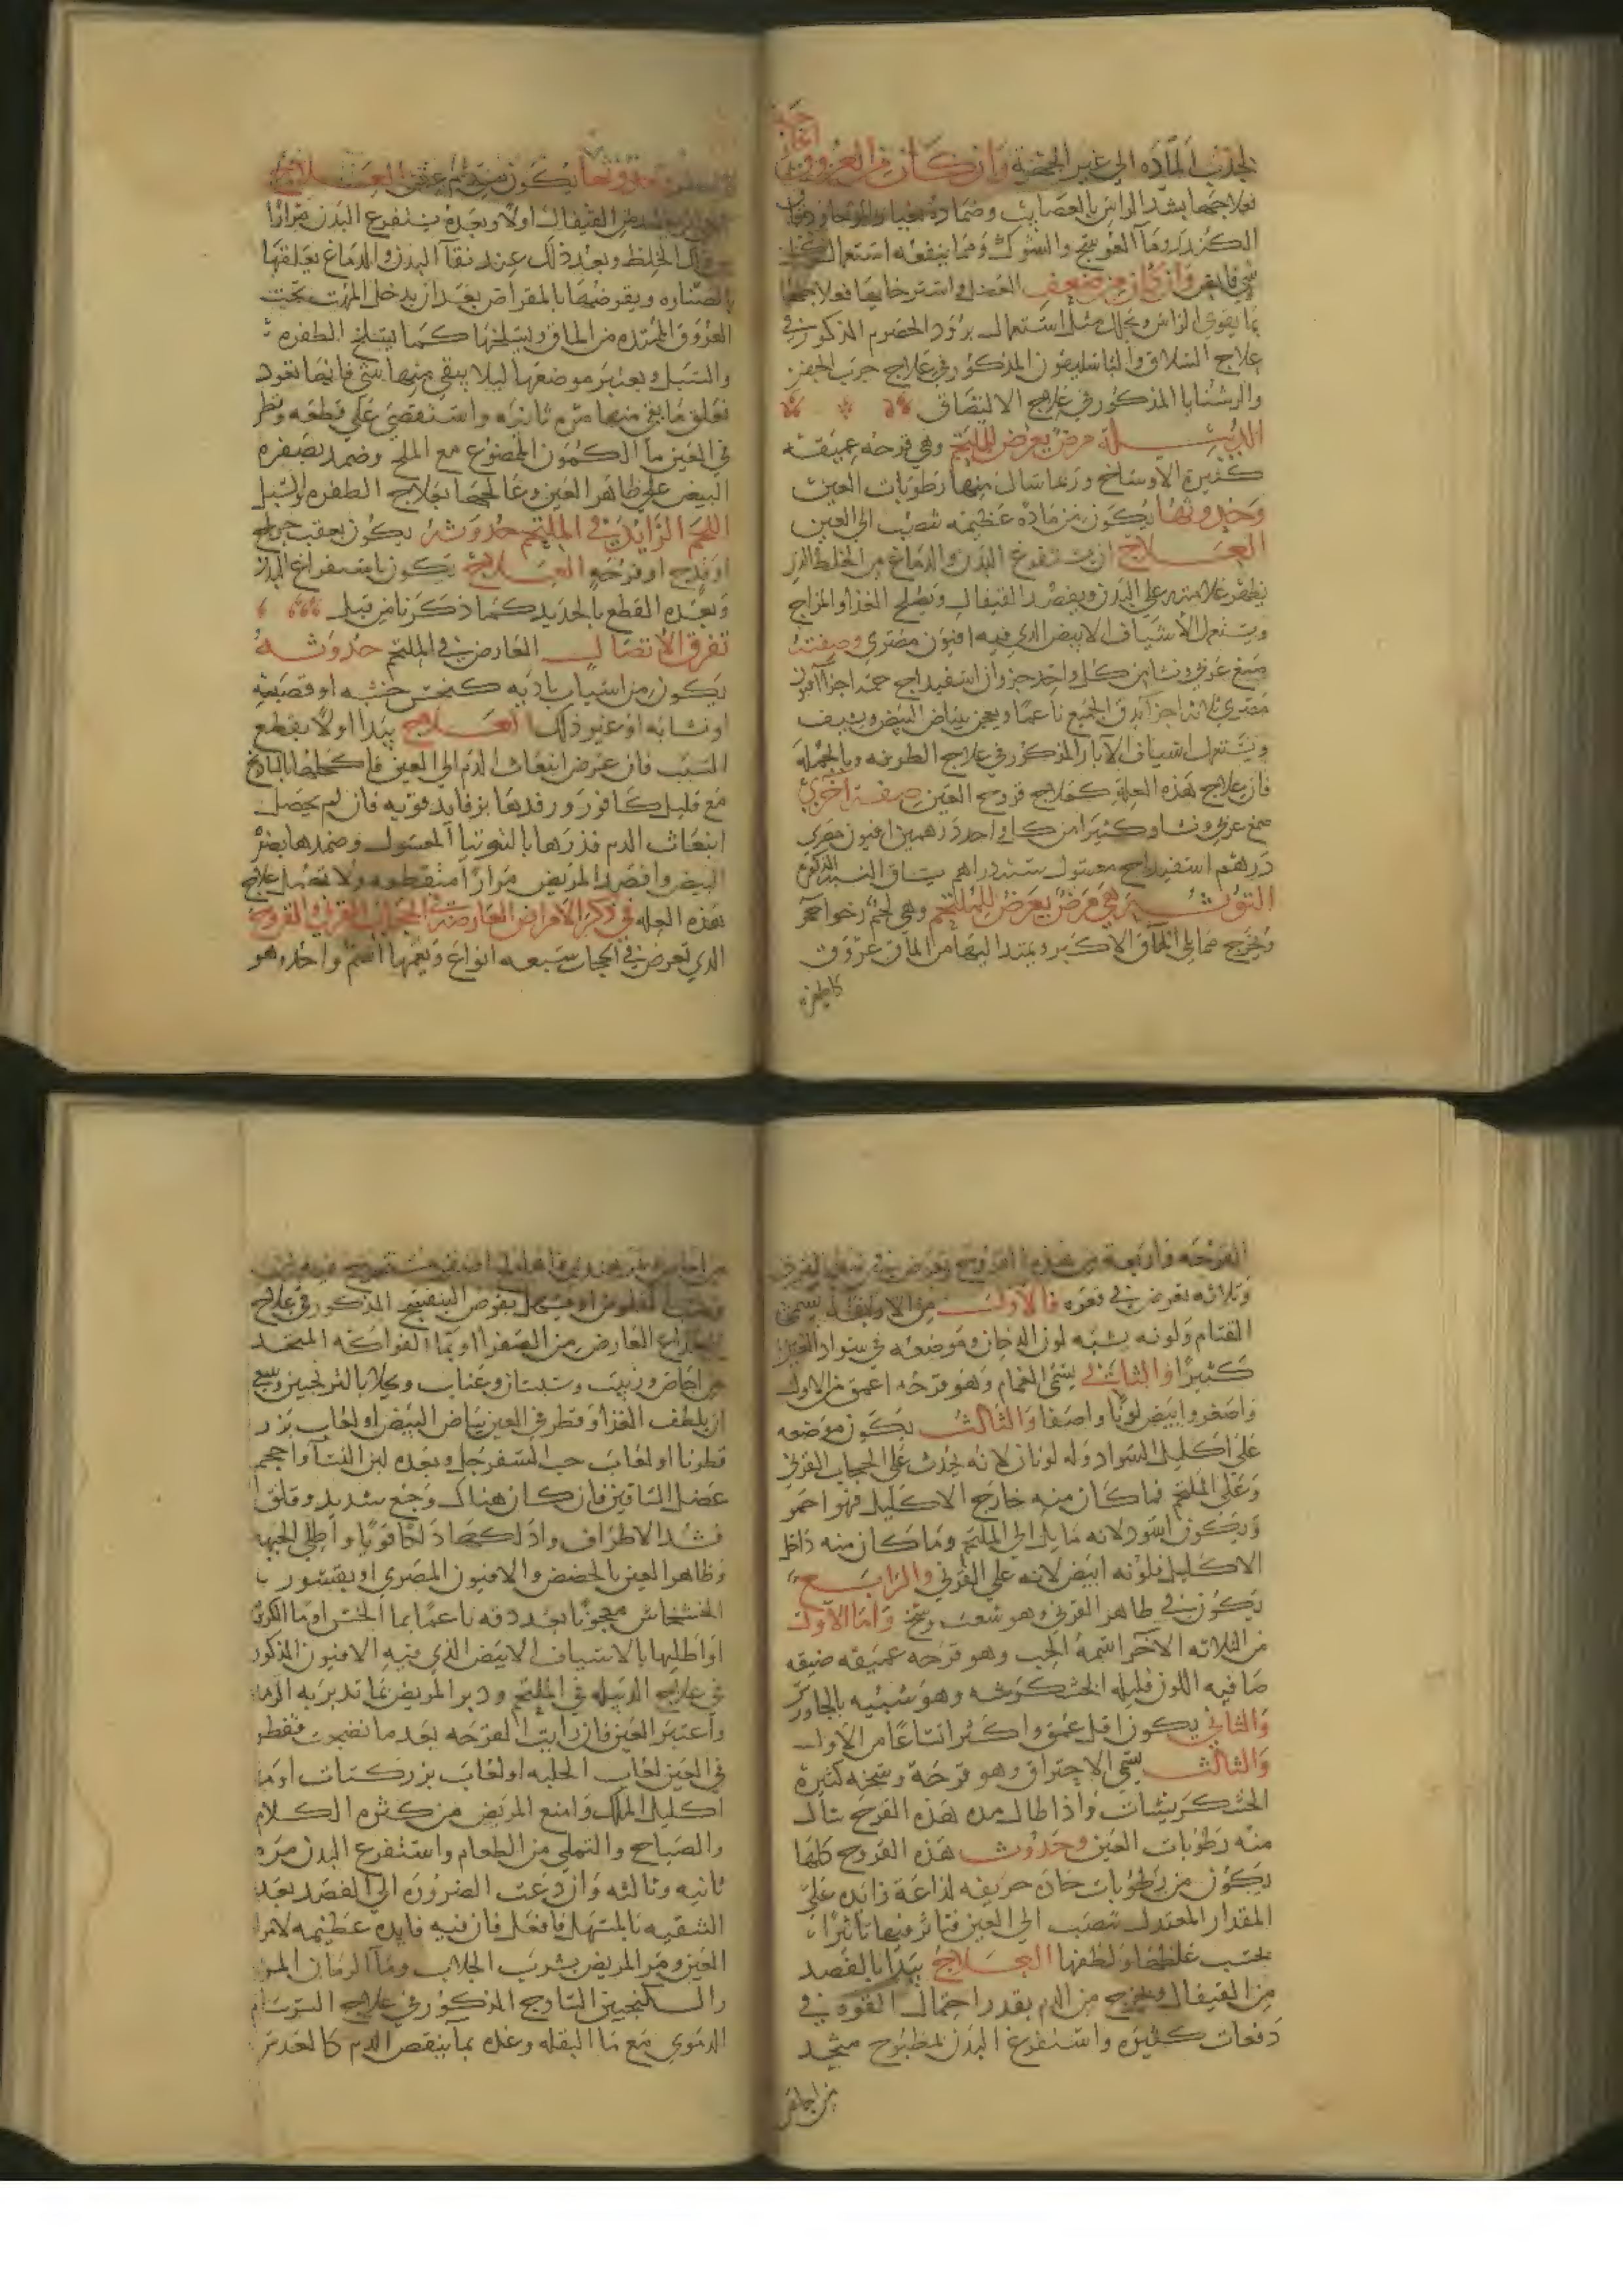 لجذب الماده الى غير الجهه وان كان من العروق
فعلاجهما بشد الراس بالعصايب وضماده بغبار
الكندر وما العوسج والشوك ومما ينفعه استعمال
وان كان من ضعف العضل واسترخايها فعلاجهما
بما يقوي الراس ويحلل مثل استعمال برود الحصرم المذكور في
علاج السلاق والباسليقون المذكور في علاج جرب الجفن
والروشنايا المذكور في علاج الالتصاق
الدبيلة مرض يعرض للملتحم وهي قرحه عميقه
كثيرة الاوساخ وربما سال منها رطوبات العين
وحدوثها يكون من ماده عظيمه تنصب الى العين
العلاج ان يستفرغ البدن والدماغ من الخلط الذي
يظهر علامته على البدن ويفصد القيفال ويصلح الغذا والمزاج
ويستعمل الاشياف الابيض الذي فيه افيون مصري وصفته
صمغ عربي ونشا من كل واحد جزوان اسفيداج خمسة اجزا افيون
مصري ثلاثه اجزا يدق الجميع ناعما ويعجن ببياض البيض ويشيف
ويستعمل اشياف الابار المذكور في علاج الطرفه وبالجمله
فان علاج هذه العله كعلاج قروح العين صفة اخرى
صمغ عربي ونشا وكثيرا من كل واحد درهمين افيون مصري
درهم اسفيداج مغسول ستة دراهم
التوثه هي مرض يعرض للملتحم وهي لحم رخو احمر
ويخرج مما يلي الماق الاكبر ويمتد اليها من الماق عروق
كالظفره
وحدوثها يكون من دم عفن العلاج
القيفال اولا وبعده يستفرغ البدن مرارا
الخلط وبعد ذلك عند نقا البدن والدماغ يعلقها
بالصناره ويقرضها بالمقراض بعد ان يدخل المهت تحت
العروق الممتده من الماق ويسلخها كما يسلخ الظفره
والسبل ويعتبر موضعها ليلا يبقى منها شي فانها تعود
فعلق ما بقي منها مره ثانيه واستقصي على قطعه وقطر
في العين ما الكمون الممضوغ مع الملح وضمد بصفره
البيض على ظاهر العين وعالجها بعلاج الظفره والسبل
اللحم الزايد في الملتحم حدوثه يكون بعقب جراح
او قرحه العلاج يكون باستفراغ البدن
وبعده القطع بالحديد كما ذكرنا من قبل
تفرق الاتصال العارض في الملتحم حدوثه
يكون من اسباب باديه كنخس خشبه او قصبه
او نشابه او غير ذلك العلاج يبدا اولا بقطع
السبب فان عرض انبعاث الدم الى العين فاكحلها
مع قليل كافور ورفدها برفايد قويه فان لم يحصل
انبعاث الدم فذرها بالتوتيا المغسول وضمدها بصفر
البيض وافصد المريض مرارا متقطعه ولا تهمل علاج
هذه العله في ذكر الامراض العارضه في الحجاب القرني القروح
الذي تعرض في الحجاب سبعه انواع ويعمها اسم واحد وهو
القرحه واربعة من هذه القروح تعرض في سطح القرني
وثلاثه تعرض في قعره فالاولى من الاربعه يسمى
القتام ولونه يشبه لون الدخان وموضعه في سواد العين
كثيرا والثاني يسمى الغمام وهو قرحه اعمق من الاول
واصغر وابيض لونا واصفا والثالث يكون موضعه
على اكليل السواد وله لونان لانه يحدث على الحجاب القرني
وعلى الملتحم فما كان منه خارج الاكليل فهو احمر
ويكون اسود لانه مايل الى الملتحم وما كان منه داخل
الاكليل فلونه ابيض لانه على القرني والرابع
يكون في ظاهر القرني وهو شعث وسخ واما الاول
من الثلاثه الاخر اسمه الجب وهو قرحه عميقه ضيقه
صافيه اللون قليله الخشكريشه وهو شبيه بالجاورس
والثاني يكون اقل عمق واكثر اتساعا من الاول
والثالث يسمى الاحتراق وهو قرحة وسخه كثيرة
الخشكريشات واذا طال مده هذه القرح سال
منه رطوبات العين وحدوث هذه القروح كلها
يكون من رطوبات حاده حريفه لذاعة زايده على
المقدار المعتدل تنصب الى العين فتاثر فيها تاثيرا
بحسب غلظها ولطفها العلاج يبدا بالفصد
من القيفال ويخرج من الدم بقدر احتمال القوه في
دفعات كثيره واستفرغ البدن بمطبوخ متخذ
من اجاص
او يستعمل بقرص البنفسج المذكور في علاج
الصداع العارض من الصفرا او بما الفواكه المتخد
من اجاص وزبيب وسبستان وعناب ومحلا بالترنجبين وينبغي
ان يلطف الغذا وقطر في العين بياض البيض او لعاب بزر
قطونا او لعاب حب السفرجل وبعده لبن النسا واحجم
عضل الساقين فان كان هناك وجع شديد وقلق
فشد الاطراف وادلكها دلكا قويا واطلي الجبهه
وظاهر العين بالحضض والافيون المصري او بقشور
الخشخاش معجونا بعد دقه ناعما بما الخس او ما الكزبره
او اطلها بالاشياف الابيض الذي فيه الافيون المذكور
في علاج الدبيله في الملتحم ودبر المريض بما تدبر به الرمد
واعتبر العين فان رايت القرحه بعد ما نضجت فقطر
في العين لعاب الحلبه او لعاب بزر كتان او ما
اكليل الملك وامنع المريض من كثره الكلام
والصياح والتملي من الطعام واستفرغ البدن مره
ثانيه وثالثه وان دعت الضروره الى الفصد بعد
التنقيه بالمسهل فافعل فان فيه فايده عظيمه لامراض
العين ومر المريض بشرب الجلاب وما الرمان المز
والسكنجبين الساذج المذكور في علاج السرسام
الدموي مع ما البقله وغذه بما ينقص الدم كالعدس